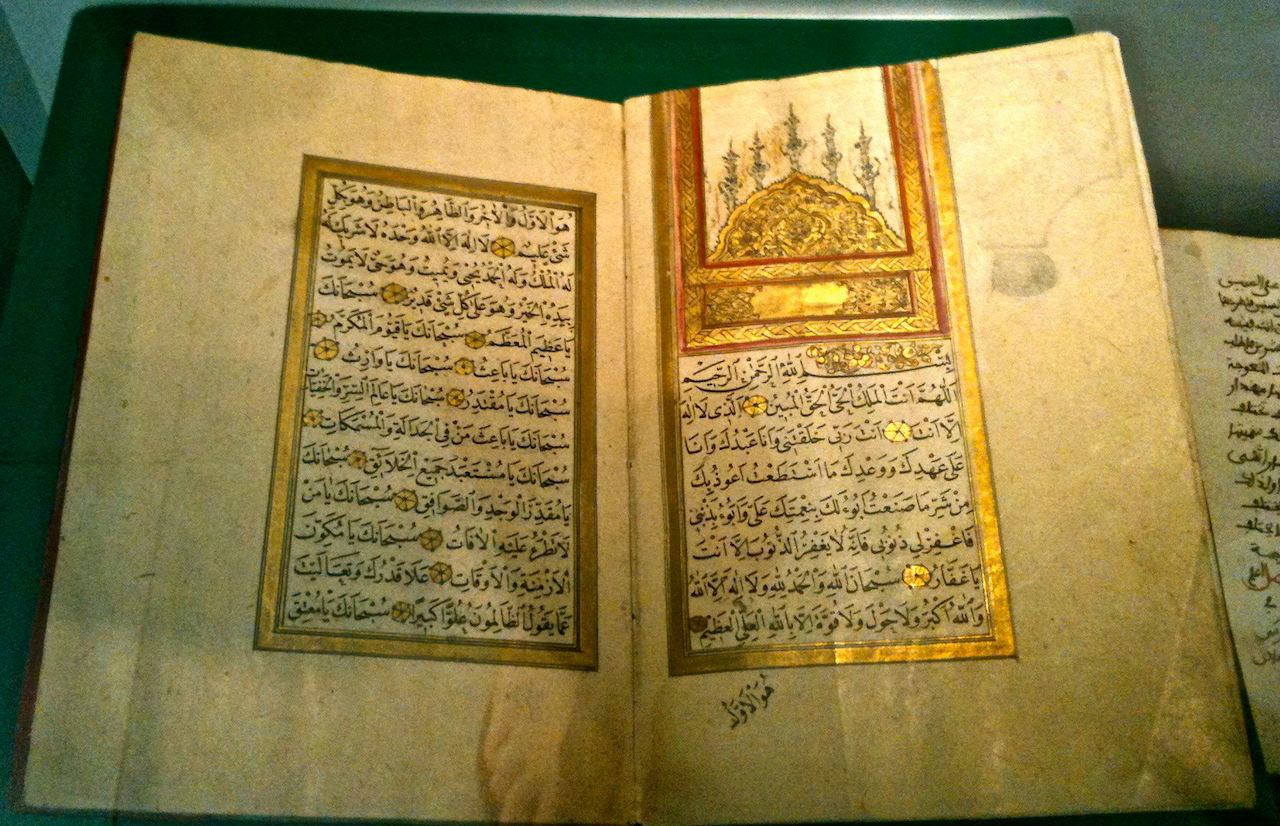 بِسْمِ اللهِ الرَّحْمٰنِ الرَّحِيمِ
اَللّٰهُمَّ اَنْتَ الْمَلِكُ الْحَىُّ الْحَقُّ الْمُبِينُ اَلَّذِى لَا اِلٰهَ
اِلَّا اَنْتَ اَنْتَ رَبِّى خَلَقْتَنِى وَاَنَا عَبْدُكَ وَاَنَا
عَلٰى عَهْدِكَ وَوَعْدِكَ مَا اسْتَطَعْتُ اَعُوذُ بِكَ
مِنْ شَرِّ مَا صَنَعْتُ اَبُوءُ لَكَ بِنِعْمَتِكَ عَلَىَّ وَاَبُوءُ بِذَنْبِى
فَاغْفِرْ لِى ذُنُوبِى فَاِنَّهُ لَا يَغْفِرُ الذُّنُوبَ اِلَّا اَنْتَ
يَا غَفَّارُ سُبْحَانَ اللهِ وَالْحَمْدُ لِلّٰهِ وَلَا اِلٰهَ اِلَّا اللهُ
وَاللهُ اَكْبَرُ وَلَا حَوْلَ وَلَا قُوَّةَ اِلَّا بِاللهِ الْعَلِىِّ الْعَظِيمِ
هُوَ الْاَوَّلُ
هُوَ الْاَوَّلُ وَالْاٰخِرُ وَالظَّاهِرُ وَالْبَاطِنُ وَهُوَ بِكُلِّ
شَىْءٍ عَلِيمٌ لَا اِلٰهَ اِلَّا اللهُ وَحْدَهُ لَا شَرِيكَ لَهُ
لَهُ الْمُلْكُ وَلَهُ الْحَمْدُ يُحْيِى وَيُمِيتُ وَهُوَ حَىٌّ لَا يَمُوتُ
بِيَدِهِ الْخَيْرُ وَهُوَ عَلٰى كُلِّ شَىْءٍ قَدِيرٌ سُبْحَانَكَ
يَا عَظِيمُ الْمُعَظَّمُ سُبْحَانَكَ يَا قَيُّومُ الْمُكَرَّمُ
سُبْحَانَكَ يَا بَاعِثُ سُبْحَانَكَ يَا وَارِثُ
سُبْحَانَكَ يَا مُقْتَدِرُ سُبْحَانَكَ يَا عَالِمَ السِّرِّ وَالْخَفِيَّاتِ
سُبْحَانَكَ يَا بَاعِثَ مَنْ فِى الْجَدَالَةِ وَالْمُسْمَكَاتِ
سُبْحَانَكَ يَا مُسْتَعْبِدَ جَمِيعِ الْخَلَائِقِ سُبْحَانَكَ
يَا مُقَدِّرَ الْوَجْدِ وَالصَّوَافِقِ سُبْحَانَكَ يَا مَنْ
لَا تَطْرَءُ عَلَيْهِ الْاٰفَاتُ سُبْحَانَكَ يَا مُكَوِّنَ
الْاَزْمِنَةِ وَالْاَوْقَاتِ عَلَا قَدْرُكَ وَتَعَالَيْتَ
عَمَّا يَقُولُ الظَّالِمُونَ عُلُوًّا كَبِيرًا سُبْحَانَكَ يَا مُعْتِقَ